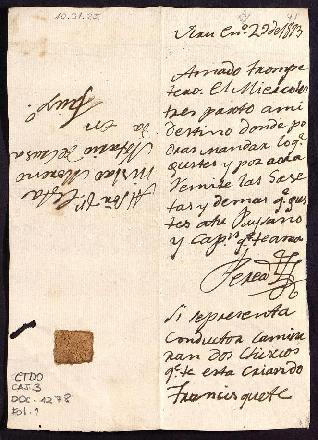 10.31.23
41
En.º 29 de 1813
Amado Trompe
tero. El Miercoles
tres parto a mi
destino donde po
dras mandar lo q.
gustes y por aora
remite las Gase
tas y demas q.e gus
tes a the Paysano
y Cap.n q.e te ama
Perea
Si se presenta
Conductor Camina
ran dos Chicos
q.e te esta Criando
Francisquete
Al Señor D.n
Moreno
Maria
da en
ETDO
CAJ. 3
DOC. 1278
Fol. 1